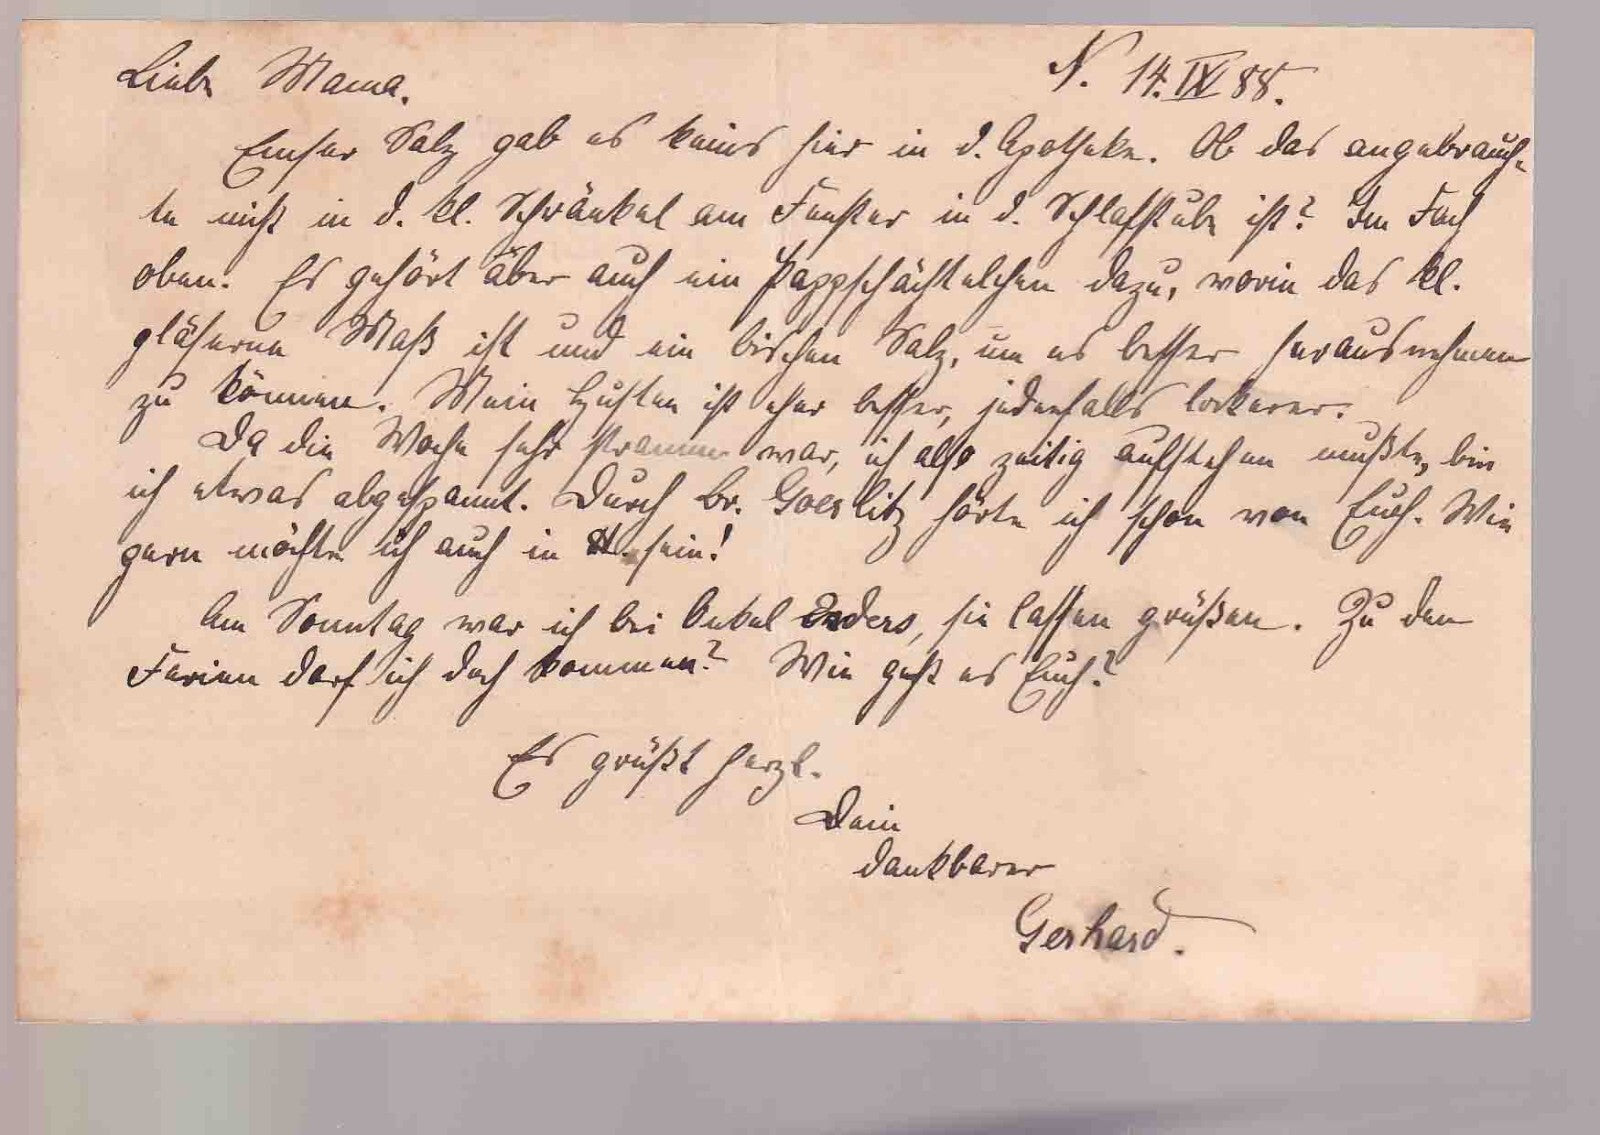 Liebe Mama.
N. 14. IX 88.
Emser Salz gab es keins hier in d. Apotheke. Ob das angebrauch-
te nicht in d. kl. Schränkel am Fenster in d. Schlafstube ist? Im Fach
oben. Es gehört aber auch ein Pappschächtelchen dazu, worin das kl.
gläserne Maß ist und ein bischen Salz, um es besser herausnehmen
zu können. Mein Husten ist eher besser, jedenfalls lockerer.
Da die Woche sehr stramm war, ich also zeitig aufstehen mußte, bin
ich etwas abgespannt. Durch Br. Goerlitz hörte ich schon von Euch. Wie
gern möchte ich auch in H. sein!
Am Sonntag war ich bei Onkel Enders, sie lassen grüßen. Zu den
Ferien darf ich doch kommen? Wie geht es Euch?
Es grüßt herzl.
Dein
dankbarer
Gerhard.